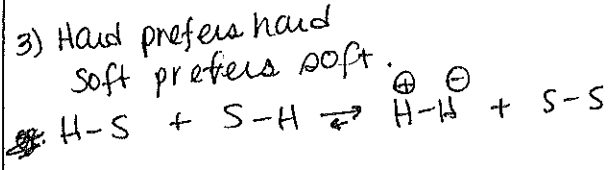 3) Hard prefers hard
Soft prefers soft.
H-S + S-H ⇌ H-H + S-S
⊕ ⊖